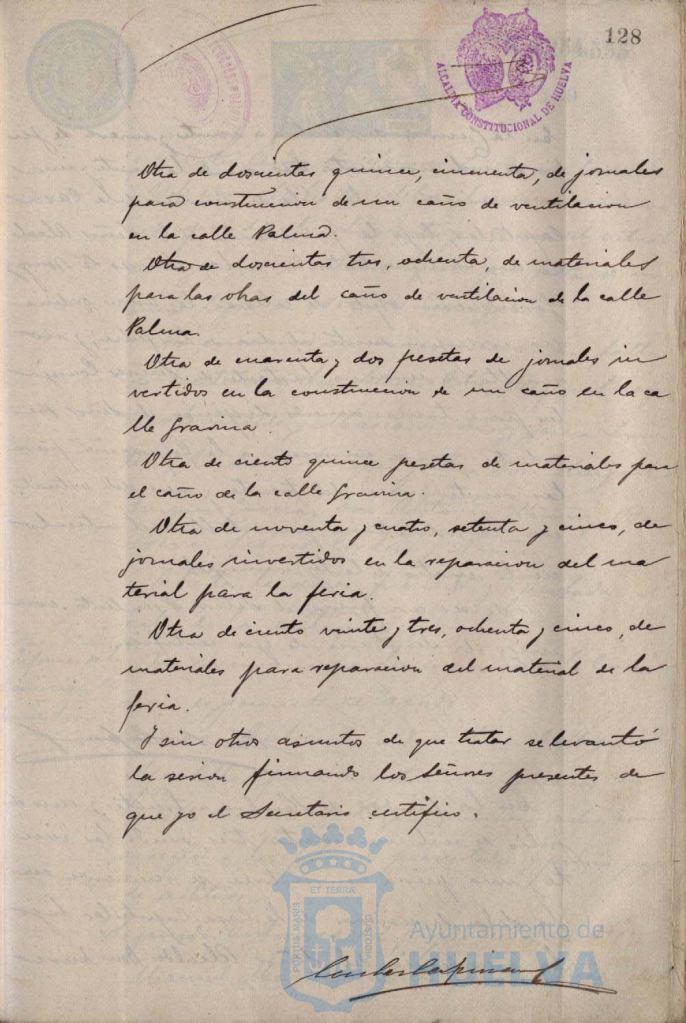 128
ALCALDIA CONSTITUCIONAL DE HUELVA
Otra de doscientas quince, cincuenta, de jornales
para construccion de un caño de ventilacion
en la calle Palma.
Otra de doscientas tres, ochenta, de materiales
para las obras del caño de ventilacion de la calle
Palma.
Otra de cuarenta y dos pesetas de jornales in
vertidos en la construccion de un caño en la ca
lle Gravina.
Otra de ciento quince pesetas de materiales para
el caño de la calle Gravina.
Otra de noventa y cuatro, setenta y cinco, de
jornales invertidos en la reparacion del ma
terial para la feria.
Otra de ciento veinte y tres, ochenta y cinco, de
materiales para reparacion del material de la
feria.
Y sin otros asuntos de que tratar se levantó
la sesion firmando los Señores presentes de
que yo el Secretario certifico.
PORTUS MARIS
ET TERRÆ
CUSTODIA
Ayuntamiento de
HUELVA